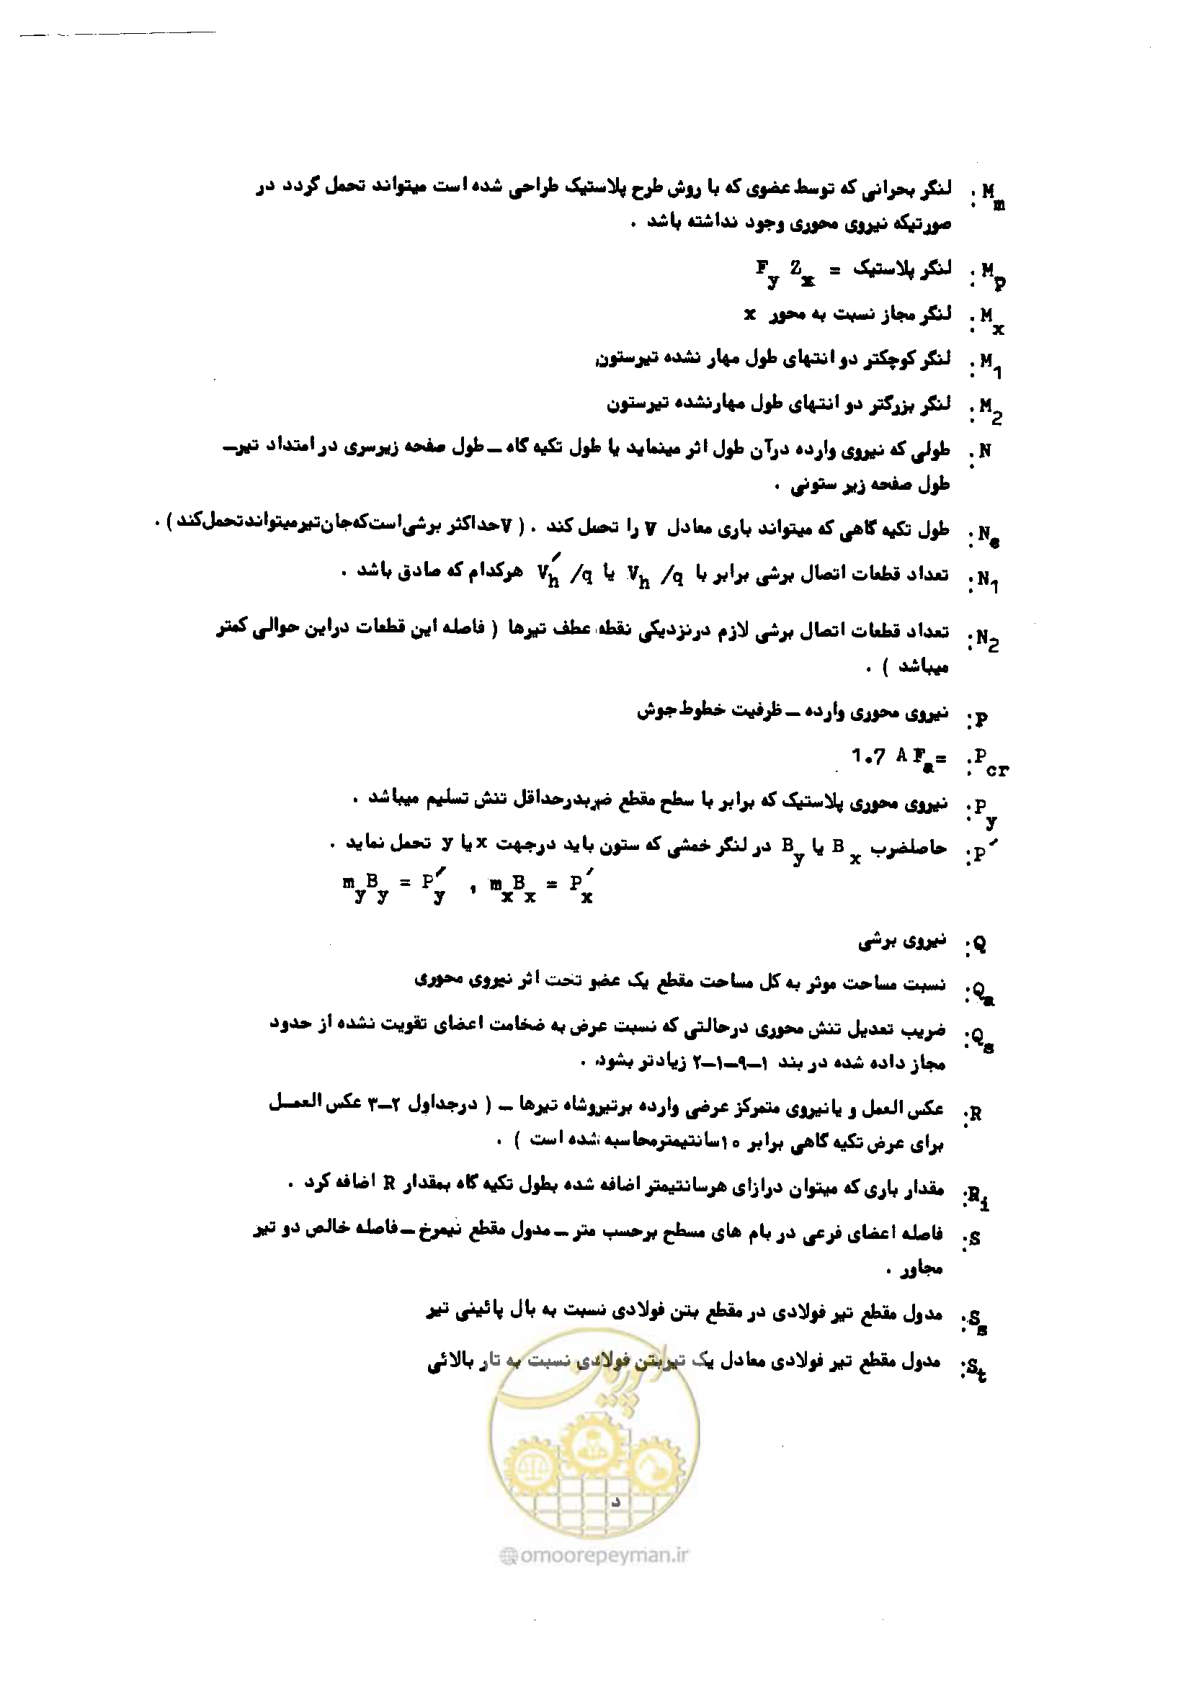 M_m : لنگر بحرانی که توسط عضوی که با روش طرح پلاستیک طراحی شده است میتواند تحمل گردد در
صورتیکه نیروی محوری وجود نداشته باشد .
M_p : لنگر پلاستیک = F_y Z_x
M_x : لنگر مجاز نسبت به محور x
M_1 : لنگر کوچکتر دو انتهای طول مهار نشده تیرستون
M_2 : لنگر بزرگتر دو انتهای طول مهارنشده تیرستون
N : طولی که نیروی وارده درآن طول اثر مینماید یا طول تکیه گاه ــ طول صفحه زیرسری در امتداد تیرــ
طول صفحه زیر ستونی .
N_e : طول تکیه گاهی که میتواند باری معادل V را تحمل کند . ( V حداکثر برشی است که جان تیر میتواند تحمل کند ) .
N_1 : تعداد قطعات اتصال برشی برابر با V_h /q یا V′_h /q هرکدام که صادق باشد .
N_2 : تعداد قطعات اتصال برشی لازم درنزدیکی نقطه عطف تیرها ( فاصله این قطعات دراین حوالی کمتر
میباشد ) .
P : نیروی محوری وارده ــ ظرفیت خطوط جوش
P_cr : =1.7 A F_a
P_y : نیروی محوری پلاستیک که برابر با سطح مقطع ضربدرحداقل تنش تسلیم میباشد .
P′ : حاصلضرب B_x یا B_y در لنگر خمشی که ستون باید درجهت x یا y تحمل نماید .
m_y B_y = P′_y , m_x B_x = P′_x
Q : نیروی برشی
Q_a : نسبت مساحت موثر به کل مساحت مقطع یک عضو تحت اثر نیروی محوری
Q_s : ضریب تعدیل تنش محوری درحالتی که نسبت عرض به ضخامت اعضای تقویت نشده از حدود
مجاز داده شده در بند ۱ــ۹ــ۱ــ۲ زیادتر بشود .
R : عکس العمل و یانیروی متمرکز عرضی وارده برتیروشاه تیرها ــ ( درجداول ۲ــ۳ عکس العمــل
برای عرض تکیه گاهی برابر ۱۰سانتیمترمحاسبه شده است ) .
R_i : مقدار باری که میتوان درازای هرسانتیمتر اضافه شده بطول تکیه گاه بمقدار R اضافه کرد .
S : فاصله اعضای فرعی در بام های مسطح برحسب متر ــ مدول مقطع نیمرخ ــ فاصله خالص دو تیر
مجاور .
S_s : مدول مقطع تیر فولادی در مقطع بتن فولادی نسبت به بال پائینی تیر
S_t : مدول مقطع تیر فولادی معادل یک تیربتن فولادی نسبت به تار بالائی
امور پیمان
د
@omoorepeyman.ir